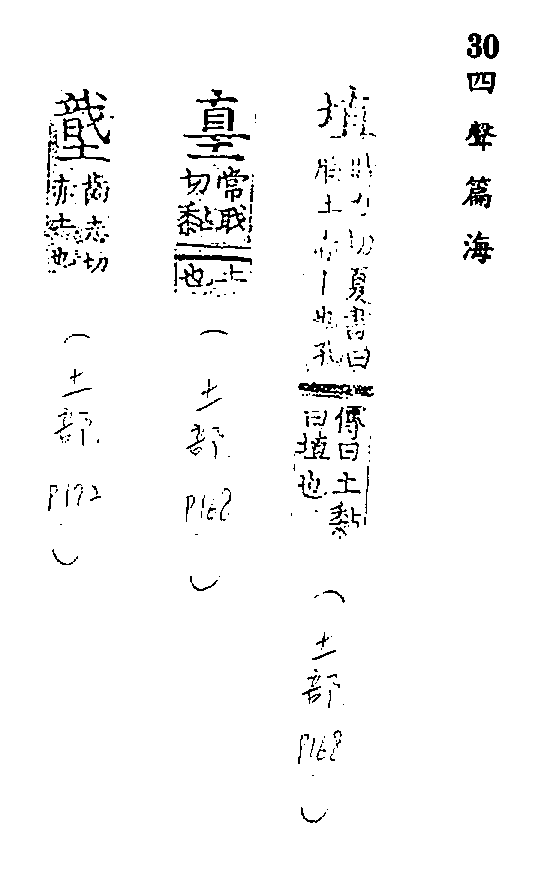 30 四聲篇海
埴
切夏書曰
土
也孔
傳曰土黏
曰埴也
(土部 P168)
常職
切黏
土
也
(土部 P168)
齒志切
亦土也
(土部 P172)